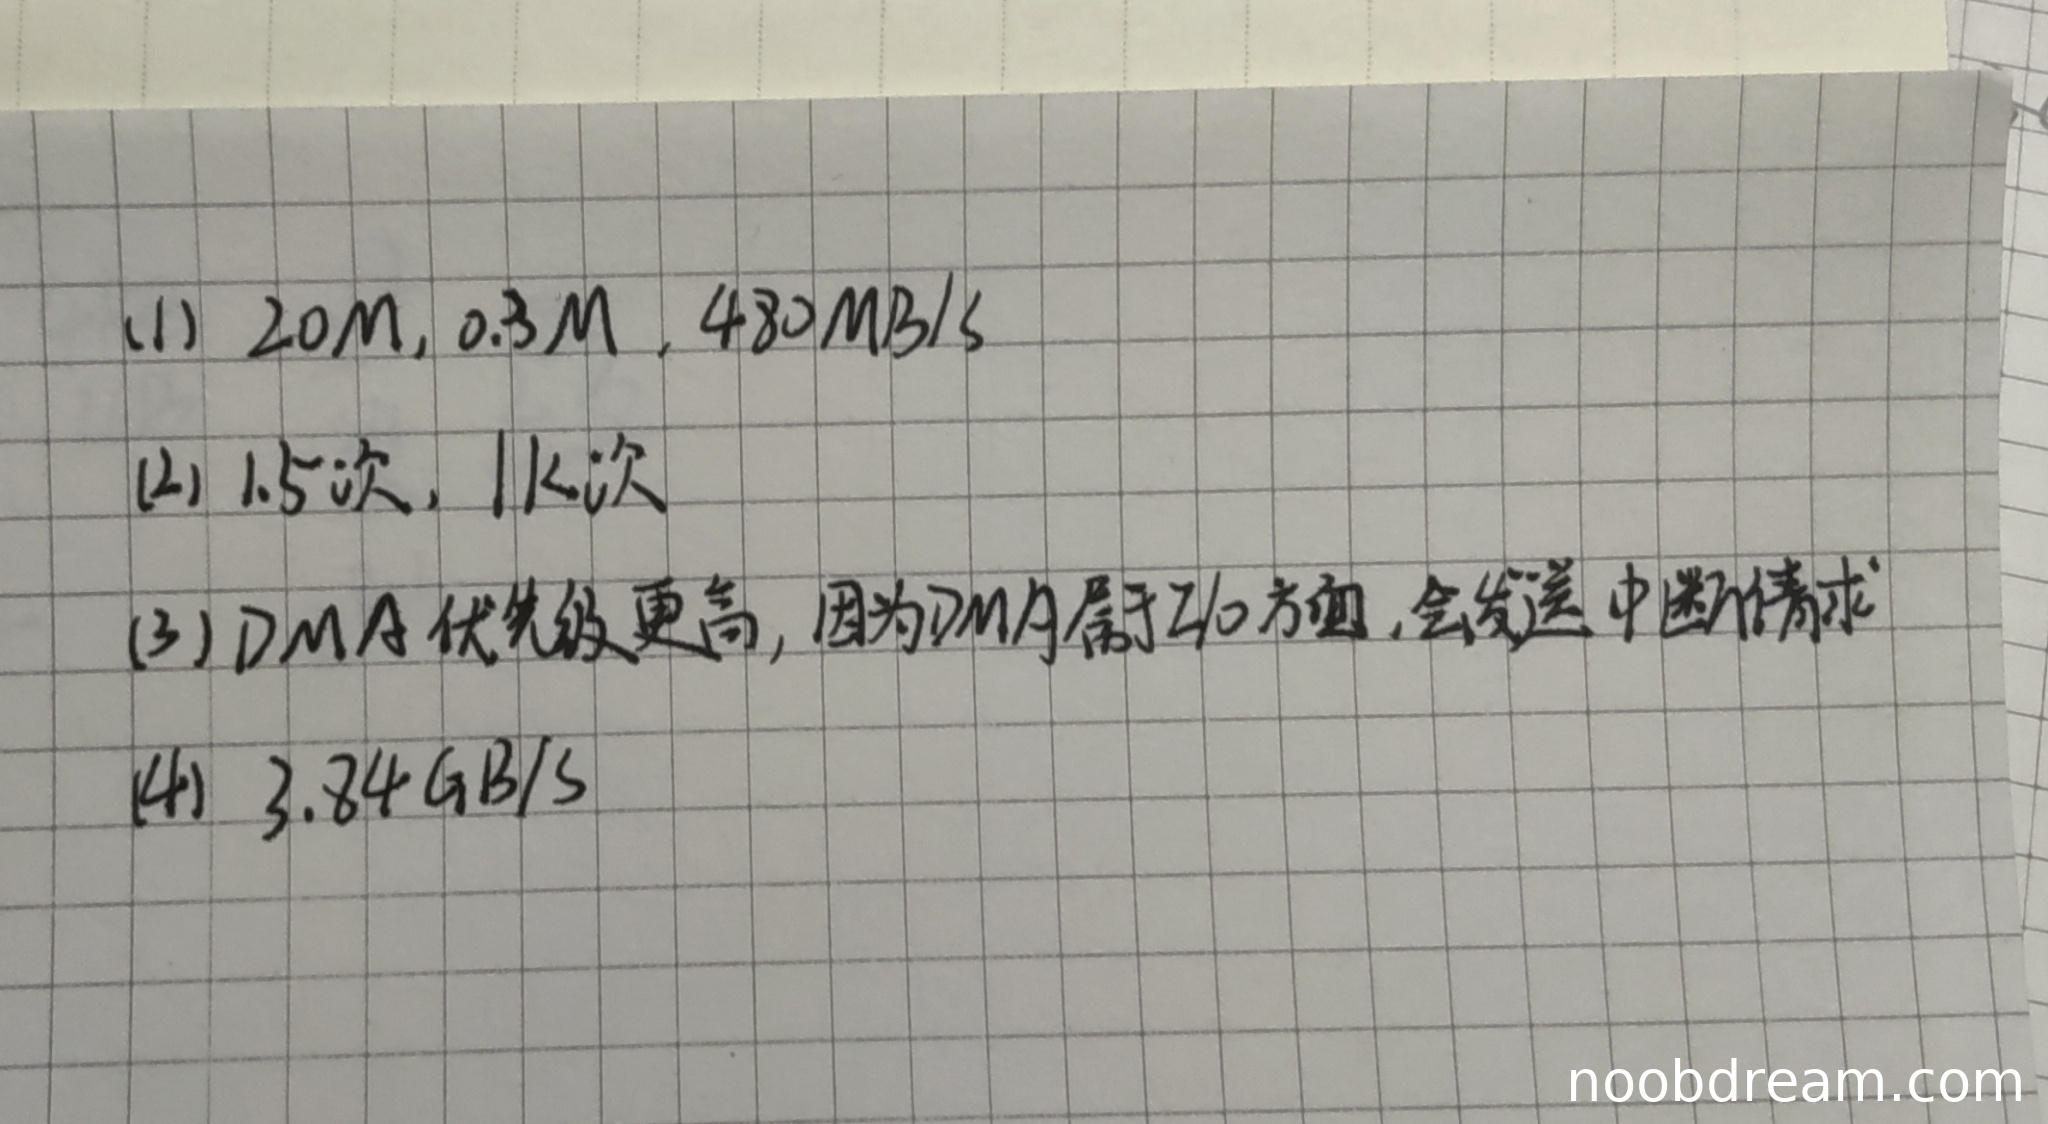 (1) 20M, 0.3M, 480MB/s
(2) 1.5次, 1K次
(3) DMA优先级更高, 因为DMA属于I/O方面, 会发送中断请求
(4) 3.84GB/s
noobdream.com